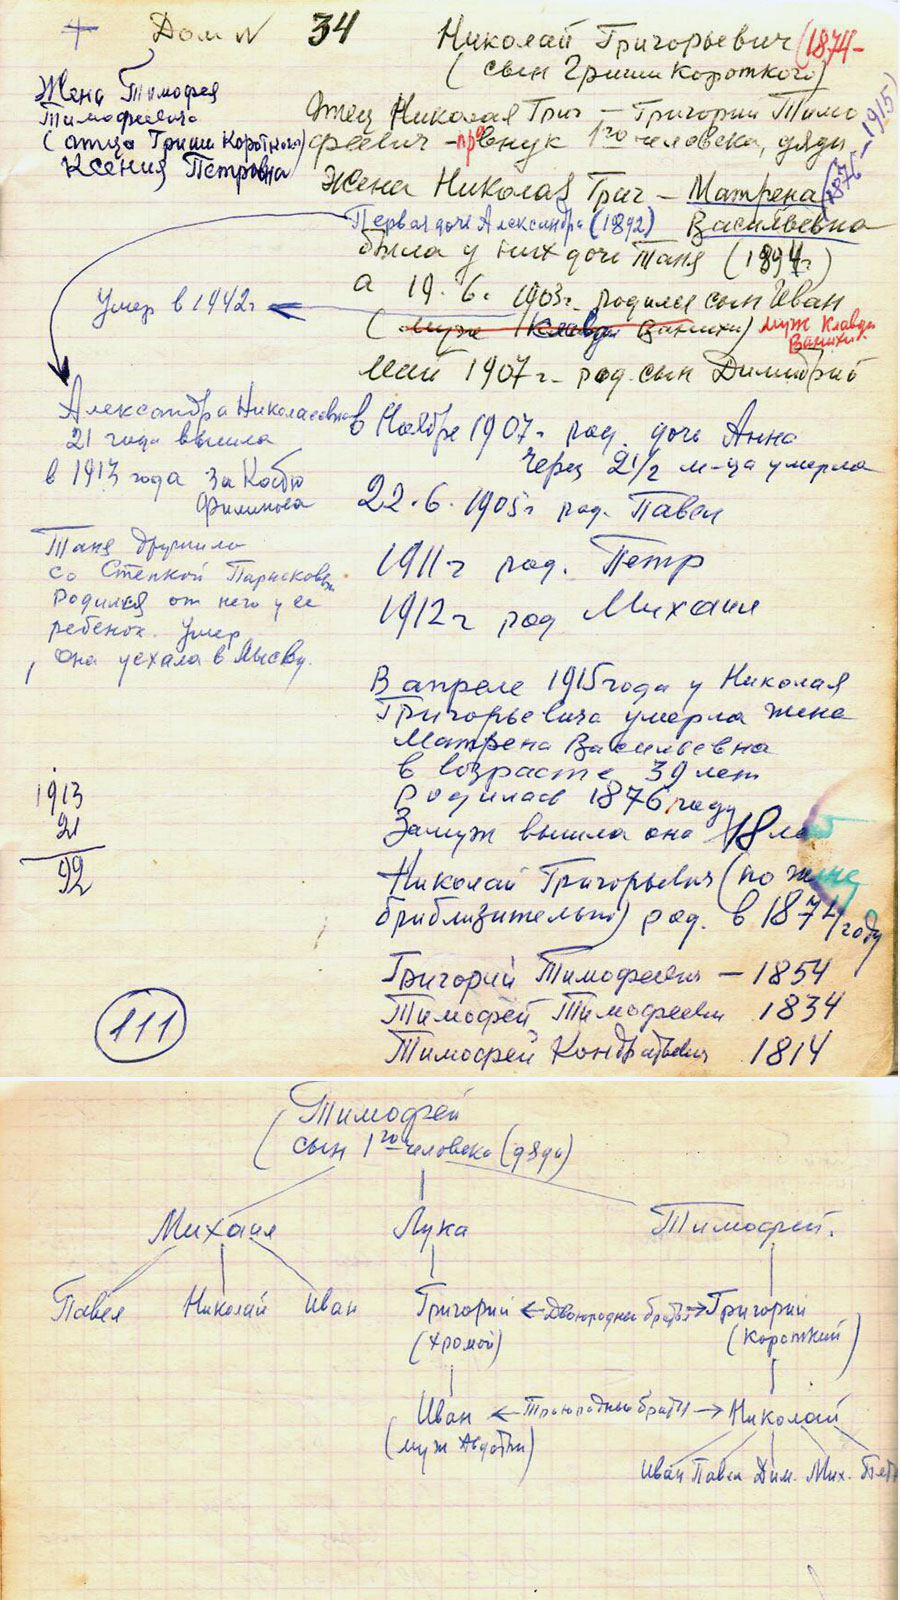 + Дом N 34
Николай Григорьевич (1874-
(сын Гриши Короткого)
Жена Тимофея
Тимофеевича
(отца Гриши Короткого)
Ксения Петровна
Отец Николая Григ — Григорий Тимо
феевич - правнук 1го человека, дяди
Жена Николая Григ — Матрена (1876-1915)
Васильевна
Первая дочь Александра (1892)
была у них дочь Таня (1894г)
а 19.6. 1903г. родился сын Иван
Умер в 1942г
(муж Клавди Ванихи) муж Клавди
Ванихи
Май 1907г. род. сын Димитрий
Александра Николаевна
21 года вышла
в 1913 года за Костю
Филипова
в Ноябре 1907г род. дочь Анна
Через 2 1/2 м-ца умерла
22.6.1905г род. Павел
Таня дружила
со Степкой
Родился от него у ее
ребенок. Умер
она уехала в Лысву.
1911г род. Петр
1912г род Михаил
В апреле 1915 года у Николая
Григорьевича умерла жена
Матрена Васильевна
в возрасте 39 лет
Родилась 1876 году
Замуж вышла она 18 лет
1913
21
92
Николай Григорьевич (по жене
приблизительно) род. в 1874 году
Григорий Тимофеевич — 1854
Тимофей Тимофеевич 1834
Тимофей Кондратьевич 1814
111
Тимофей
(сын 1го человека (дяди)
Михаил Лука Тимофей.
Павел Николай Иван Григорий ← Двоюродные братья → Григорий
(Хромой) (Короткий)
Иван ← Троюродные братья → Николай
(муж Авдотьи)
Иван Павел Дим. Мих. Петр